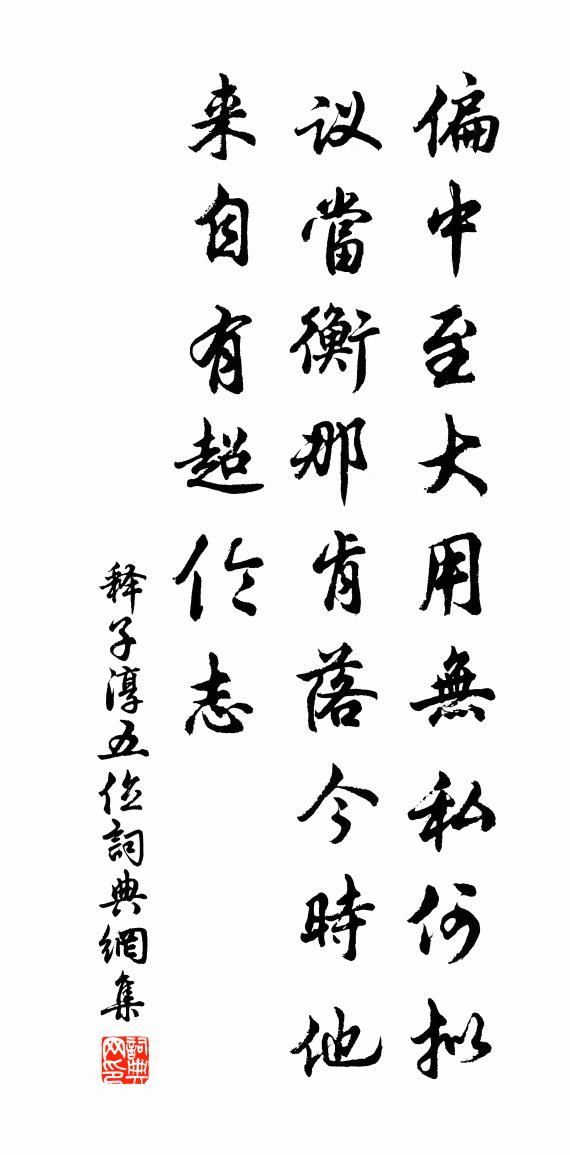 偏中至大用無私何拟
议當衡那肯落今時他
来自有超伦志
释子淳五位詞典網集
詞典网印